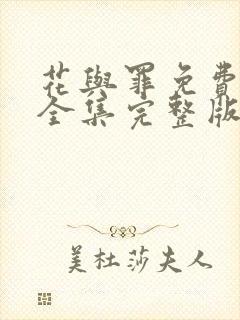 花與罪免費
全集完整版
美杜莎夫人